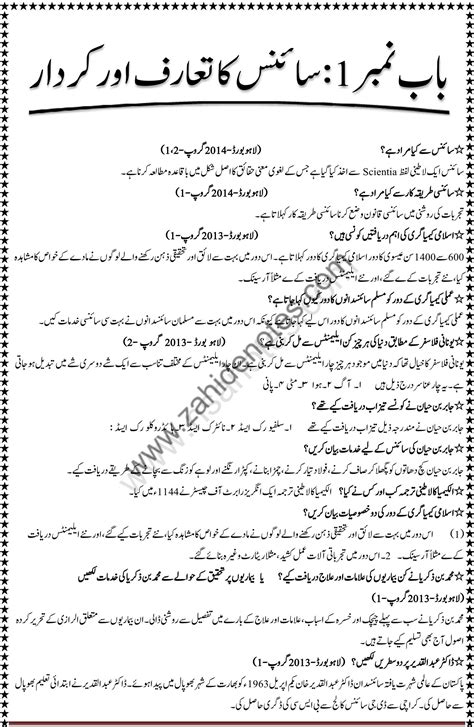 باب نمبر 1: سائنس کا تعارف اور کردار
☆سائنس سے کیا مراد ہے؟ (لاہور بورڈ-2014 گروپ-1،2)
سائنس ایک لاطینی لفظ Scientia سے اخذ کیا گیا ہے جس کے لغوی معنی حقائق کا اصل شکل میں باقاعدہ مطالعہ کرنا ہے۔
☆سائنسی طریقہ کار سے کیا مراد ہے؟ (لاہور بورڈ-2014 گروپ-1)
تجربات کی روشنی میں سائنسی قانون وضع کرنا سائنسی طریقہ کار کہلاتا ہے۔
☆اسلامی کیمیا گری کی اہم دریافتیں کونسی ہیں؟ (لاہور بورڈ-2013 گروپ-1)
600 سے 1400 سن عیسوی کا دور اسلامی کیمیا گری کا دور کہلاتا ہے۔ اس دور میں بہت سے لائق اور تحقیقی ذہن رکھنے والے لوگوں نے مادے کے خواص کا مشاہدہ
کیا، نئے تجربات کیے گئے، اور نئے ایلیمنٹس دریافت کیے مثلاً آرسینک۔
☆عملی کیمیا گری کے دور کو مسلم سائنسدانوں کا دور کیوں کہا جاتا ہے؟
عملی کیمیا گری کے دور کو مسلم سائنسدانوں کا دور اس لیے کہا جاتا ہے کیونکہ اس دور میں بہت سے مسلمان سائنسدانوں نے بہت سی سائنسی خدمات کیں۔
☆یونانی فلاسفر کے مطابق دنیا کی ہر چیز کن ایلیمنٹس سے مل کر بنی ہے؟ (لاہور بورڈ-2013 گروپ-2)
یونانی فلاسفر کا خیال تھا کہ دنیا میں موجود ہر چیز چار ایلیمنٹس سے مل کر بنی ہے۔ ان چار ایلیمنٹس کے مختلف تناسب سے ایک شے دوسری شے میں تبدیل ہو جاتی
ہے۔ یہ چار عناصر درج ذیل ہیں: 1۔ آگ 2۔ ہوا 3۔ مٹی 4۔ پانی
☆جابر بن حیان نے کونسے تیزاب دریافت کیے تھے؟
جابر بن حیان نے مندرجہ ذیل تیزاب دریافت کیے: 1۔ سلفیورک ایسڈ 2۔ نائٹرک ایسڈ 3۔ ہائڈروکلورک ایسڈ:
☆جابر بن حیان کی سائنس کے لیے خدمات بیان کریں؟
جابر بن حیان نے کچ دھاتوں کو پگھلا کر صاف کرنے، فولاد تیار کرنے، چمڑا بنانے، کپڑا رنگنے اور لوہے کو زنگ سے بچانے کے طریقے دریافت کیے۔
☆الکیمیا کا لاطینی ترجمہ کب اور کس نے کیا؟ الکیمیا کا لاطینی ترجمہ ایک انگریز رابرٹ آف چیسٹر نے 1144 میں کیا۔
☆اسلامی کیمیا گری کے دور کی دو خصوصیات بیان کریں؟
(1) اس دور میں بہت سے لائق اور تحقیقی ذہن رکھنے والے لوگوں نے مادے کے خواص کا مشاہدہ کیا، نئے تجربات کیے گئے، اور نئے ایلیمنٹس دریافت
کیے مثلاً آرسینک۔ 2۔ اس دور میں تجرباتی آلات عمل کشید، مثلاً ریٹارٹ وغیرہ بنائے گئے۔
☆محمد بن ذکریا نے کن بیماریوں کی علامات اور علاج دریافت کیے؟ یا بیماریوں پر تحقیق کے حوالے سے محمد بن ذکریا کی خدمات لکھیں
(لاہور بورڈ-2013 گروپ-1)
محمد بن ذکریا نے سب سے پہلے چیچک اور خسرہ کے اسباب، علامات اور علاج کے بارے میں تفصیل سے روشنی ڈالی۔ ان بیماریوں سے متعلق الرازی کے تحریر کردہ
اصول آج بھی تسلیم کیے جاتے ہیں۔
☆ڈاکٹر عبدالقدیر پر دو سطریں لکھیں؟ (لاہور بورڈ-2013 گروپ-1)
پاکستان کے عالمی شہرت یافتہ سائنسدان ڈاکٹر عبدالقدیر خان یکم اپریل 1963 کو بھارت کے شہر بھوپال میں پیدا ہوئے۔ ڈاکٹر عبدالقدیر نے ابتدائی تعلیم بھوپال
سے حاصل کی۔ کراچی سے ڈی جی سائنس کالج سے بی ایس سی کی ڈگری حاصل کی۔
www.zahidenotes.com